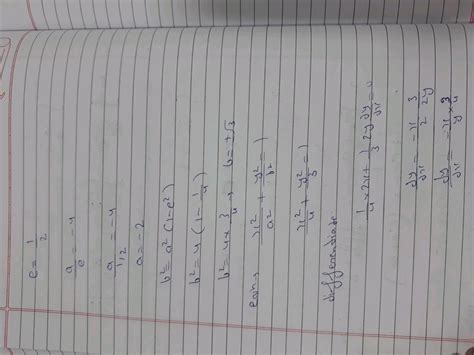 e = 1/2
a/e = -4
a/(1/2) = -4
a = -2
b² = a² (1-e²)
b² = 4 (1 - 1/4)
b² = 4 × 3/4 → b = ±√3
eqn → x²/a² + y²/b² = 1
x²/4 + y²/3 = 1
differentiate
1/4 × 2x + 1/3 2y dy/dx = 0
dy/dx = -x/2 3/2y
dy/dx = -x/y × 3/4